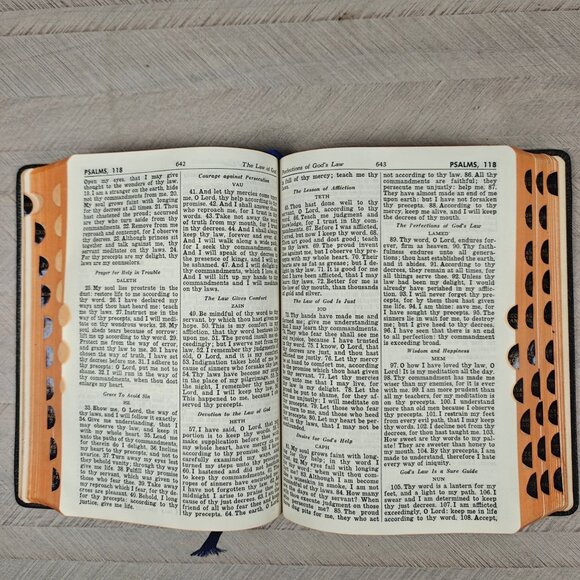 PSALMS, 118
642
The Law of God
Open my eyes, that I may give
thought to the wonders of thy law.
19. I am a stranger on the earth, hide
not thy commandments from me. 20.
My soul grows faint with longing
for thy decrees at all times. 21. Thou
hast chastened the proud; accursed
are they who turn aside from thy
commandments. 22. Remove from me
reproach and contempt, for I observe
thy decrees. 23. Although princes sit
together and talk against me, thy
servant meditates on thy laws. 24.
For thy precepts are my delight, thy
laws are my counselors.
Prayer for Help in Trouble
DALETH
25. My soul lies prostrate in the
dust: restore life to me according to
thy word. 26. I have declared my
ways and thou hast heard me; teach
me thy laws. 27. Instruct me in the
way of thy precepts, and I will medi-
tate on thy wondrous works. 28. My
soul sheds tears because of sorrow:
lift me up according to thy word. 29.
Protect me from the way of error,
and grant thy law to me. 30. I have
chosen the way of truth, I have set
thy decrees before me. 31. I adhere to
thy precepts, O Lord, put me not to
shame. 32. I will run in the way of
thy commandments, when thou dost
enlarge my heart.
Grace To Avoid Sin
HE
33. Show me, O Lord, the way of
thy laws, and I will follow it exactly.
34. Give me understanding, that I
may observe thy law, and keep it
with my whole heart. 35. Lead me
into the paths of thy commandments,
for therein do I delight. 36. Incline
my heart to thy precepts, and not to
avarice. 37. Turn away my eyes lest
they behold vanity; through thy way
give me life. 38. Fulfill thy promise
to thy servant, which was given to
those who fear thee. 39. Take away
my reproach which I fear, for thy de-
crees are pleasant. 40. Behold, I long
for thy precepts. According to thy
justice, give me life.
Courage against Persecution
VAU
41. And let thy mercies come upon
me, O Lord, thy help according to thy
promise. 42. And I shall answer those
who reproach me, for I trust in thy
words. 43. Take not away the word
of truth from my mouth
for I trust in thy decrees. 44. And I
will keep thy law always, forever
and ever. 45. And I will walk along a wide
for I seek thy commandments. 46.
And I will speak of thy decrees in
the presence of kings, and I will not
be ashamed. 47. And I will delight in
thy commandments, which I love. 48.
And I will lift up my hands to thy
commandments and I will meditate
on thy laws.
The Law Gives Comfort
ZAIN
49. Be mindful of thy word to thy
servant, by which thou hast given
me hope. 50. This is my comfort in
affliction, that thy word bestows life
upon me. 51. The proud assail me ex-
ceedingly; but I swerve not from thy
law. 52. I remember thy judgments of
old, O Lord, and it is my comfort.
53. Indignation takes hold of me be-
cause of sinners who forsake thy law.
54. Thy laws have become my songs
in the place of my pilgrimage. 55. In
the night, I remember thy name, O
Lord, and I will keep thy law. 56.
This has happened to me, because I
served thy precepts.
Devotion to the Law of God
HETH
57. I have said, O Lord, that my
portion is to keep thy words. 58. I
make supplication before thy face
my whole heart
59. I have
carefully examined my ways, and
turned my steps unto thy precepts.
60. I hastened and did not delay to
keep thy commandments. 61. The
ropes of sinners have encircled me,
I have not forgotten thy law. 62. At
midnight I arise to praise thee, be-
cause of thy just decrees. 63. I am a
friend of all who fear thee and keep
thy precepts. 64. The earth, O Lord,
Perfections of God's Law
643
PSALMS, 118
full of thy mercy; teach me thy
laws.
The Lesson of Affliction
TETH
65. Thou hast done well to thy
servant, O Lord, according to thy
word. 66. Teach me judgment and
knowledge, for I trust in thy com-
mandments. 67. Before I was afflicted,
I erred, but now I keep thy word. 68.
Thou art good and dost good; teach
me thy laws. 69. The proud invent
lies against me, but I observe thy
precepts with my whole heart. 70. Their
hearts are as fat as grease; but I de-
light in thy law. 71. It is good for me
that I have been afflicted, that I may
learn thy laws. 72. Better for me is
the law of thy mouth, than thousands
of gold and silver.
The Law of God Is Just
IOD
73. Thy hands have made me and
formed me; give me understanding
that I may learn thy commandments.
74. They who fear thee shall see me
and rejoice, because I have trusted
in thy words. 75. I know, O Lord,
that thy decrees are just, and thou hast
afflicted me justly. 76. Let thy mercy
be at hand to comfort me, according
to thy promise to thy servant. 77. Let
thy mercies come unto me that I may
live, for thy law is my delight. 78. Let the
proud be put to shame, for they af-
flict me unjustly; I will meditate on
thy precepts. 79. Let those who fear
thee turn to me, and those who heed
thy precepts. 80. Let my heart be per-
fect in thy laws, that I may not be
put to shame.
Desire for God's Help
CAPH
81. My soul grows faint with long-
ing for thy help; in thy word I
trust. 82. My eyes fail with longing
for thy word: when wilt thou com-
fort me? 83. Although I am become
like a wineskin in smoke, I am not
forgetful of thy laws. 84. How many
are the days of thy servant? When
wilt thou pass judgment on those
who persecute me? 85. The proud
have dug pits for me, they who act
not according to thy law. 86. All thy
commandments are faithful; they
persecute me unjustly: help me. 87.
They have almost made an end of me
upon earth: but I have not forsaken
thy precepts. 88. According to thy
mercy, keep me alive, and I will keep
the decrees of thy mouth.
The Perfections of God's Law
LAMED
89. Thy word, O Lord, endures for-
ever, firm as heaven. 90. Thy faith-
fulness endures unto all genera-
tions; thou hast established the earth,
and it abides. 91. According to thy
decrees, they remain at all times, for
all things serve thee. 92. Unless thy
law had been my delight, I would
already have perished in my afflic-
tion. 93. I will never forget thy pre-
cepts, for by them thou hast given
me life. 94. I am thine: save me, for
I have sought thy precepts. 95. The
sinners lie in wait for me, to destroy
me; but I give heed to thy decrees.
96. I have seen that there is an end
to all perfection: thy commandment
is exceeding broad.
Wisdom and Happiness
MEM
97. O how I have loved thy law, O
Lord! It is my meditation all the day.
98. Thy commandment has made me
wiser than my enemies, for it is ever
with me. 99. I am more prudent than
all my teachers, for my meditation is
on thy precepts. 100. I understand
more than old men because I observe
thy precepts. 101. I restrain my feet
from every evil path, that I may keep
thy words. 102. I decline not from thy
decrees, for thou hast taught me. 103.
How sweet are thy words to my pal-
ate! They are sweeter than honey to
my mouth. 104. By thy precepts, I am
made to understand, therefore I hate
every way of iniquity.
God's Law Is a Sure Guide
NUN
105. Thy word is a lantern for my
feet, and a light to my path. 106. I
swear and I am determined to keep
thy just decrees. 107. I am afflicted
exceedingly, O Lord: keep me in life
according to thy word. 108. Accept,